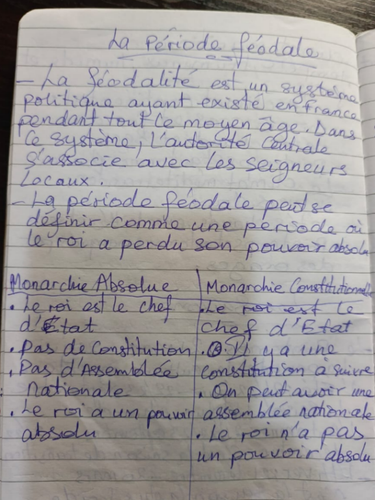 La période féodale
- La féodalité est un système
politique ayant existé en france
pendant tout le moyen âge. Dans
ce système, l'autorité centrale
s'associe avec les seigneurs
locaux.
- La période féodale peut se
définir comme une période où
le roi a perdu son pouvoir absolu
Monarchie Absolue
. Le roi est le chef
d'État
. Pas de Constitution
. Pas d'Assemblée
nationale
. Le roi a un pouvoir
absolu
Monarchie Constitutionnelle
. Le roi est le
chef d'État
. Il y a une
constitution à suivre
. On peut avoir une
assemblée nationale
. Le roi n'a pas
un pouvoir absolu